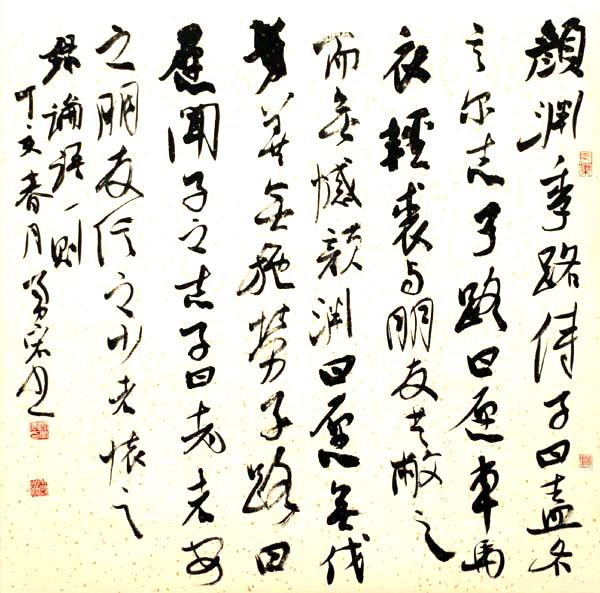 顏淵季路侍子曰盍各
言尔志子路曰愿車馬
衣輕裘与朋友共敝之
而無憾顏淵曰愿無伐
善無施勞子路曰
愿聞子之志子曰老者安
之朋友信之少者懷之
錄論語一則
丁亥春月